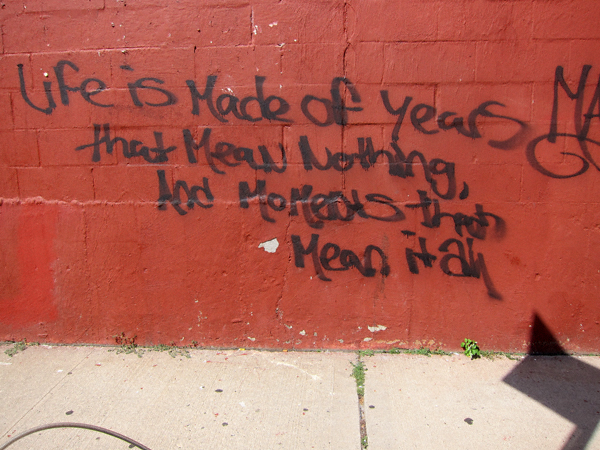 Life is Made of years
that Mean Nothing,
And Moments that
Mean it all
MA